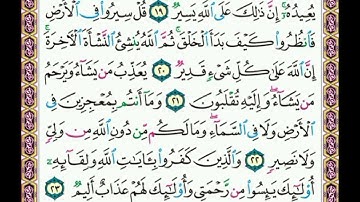 يُعِيدُهُۥٓ ۚ إِنَّ ذَٰلِكَ عَلَى ٱللَّهِ يَسِيرٌ ١٩ قُلْ سِيرُوا۟ فِى ٱلْأَرْضِ
فَٱنظُرُوا۟ كَيْفَ بَدَأَ ٱلْخَلْقَ ۚ ثُمَّ ٱللَّهُ يُنشِئُ ٱلنَّشْأَةَ ٱلْـَٔاخِرَةَ ۚ
إِنَّ ٱللَّهَ عَلَىٰ كُلِّ شَىْءٍ قَدِيرٌ ٢٠ يُعَذِّبُ مَن يَشَآءُ وَيَرْحَمُ
مَن يَشَآءُ ۖ وَإِلَيْهِ تُقْلَبُونَ ٢١ وَمَآ أَنتُم بِمُعْجِزِينَ فِى
ٱلْأَرْضِ وَلَا فِى ٱلسَّمَآءِ ۖ وَمَا لَكُم مِّن دُونِ ٱللَّهِ مِن وَلِىٍّ
وَلَا نَصِيرٍ ٢٢ وَٱلَّذِينَ كَفَرُوا۟ بِـَٔايَٰتِ ٱللَّهِ وَلِقَآئِهِۦٓ
أُو۟لَٰٓئِكَ يَئِسُوا۟ مِن رَّحْمَتِى وَأُو۟لَٰٓئِكَ لَهُمْ عَذَابٌ أَلِيمٌ ٢٣